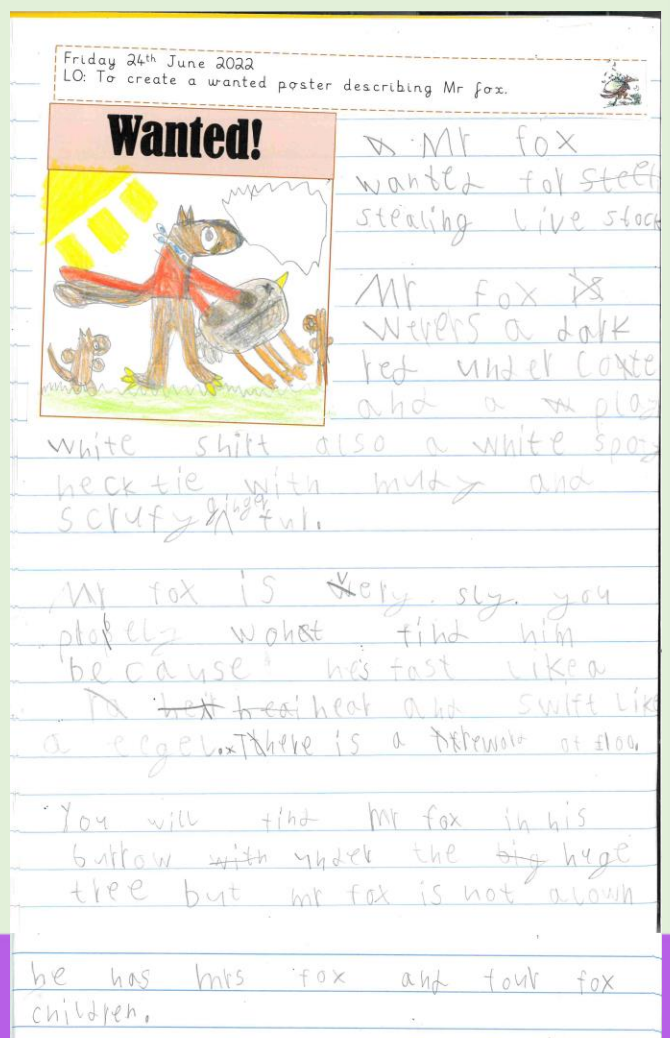 Friday 24th June 2022
LO: To create a wanted poster describing Mr fox.
Wanted!
Mr fox
wanted for steell
stealing live stock
Mr fox is
werers a dark
red under coxte
and a play
white shirt also a white spoy
neck tie with mudy and
scrufy ginger fur.
Mr fox is very sly. you
probely wohat find him
because he's fast like a
hear and swift like
a eegel. There is a reword of £100.
You will find mr fox in his
burrow with under the big huge
tree but mr fox is not alown
he has mrs fox and four fox
children.